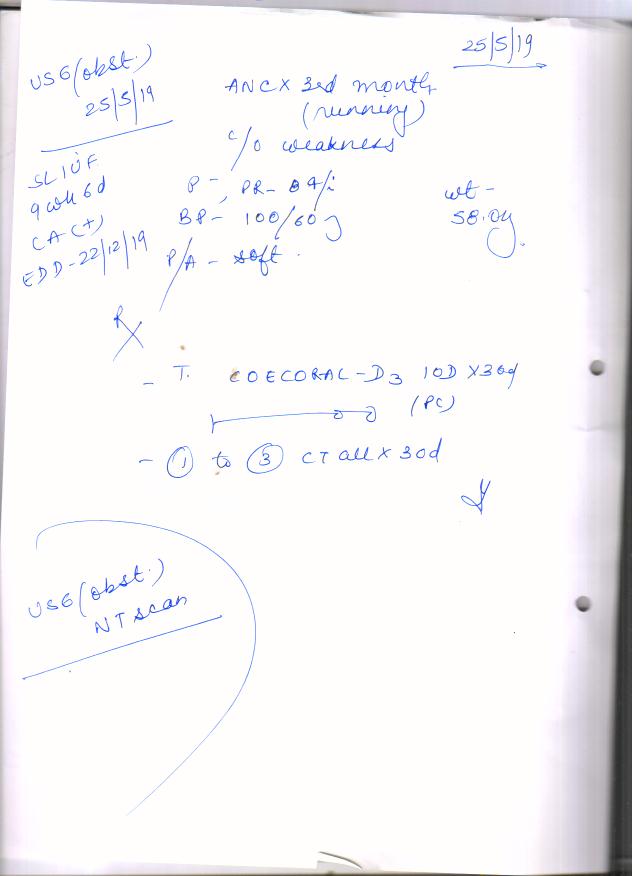 25/5/19
USG (obst.)
25/5/19
SLIUF
9 wk 6d
CA (+)
EDD - 22/12/19
ANC X 3rd month
(running)
c/o weakness
P -, PR - 84/i
BP - 100/60
P/A - soft.
wt -
58.0
Rx
- T. COECORAL-D3 1OD X 30d
(PC)
- ① to ③ CT all X 30d
USG (obst.)
NT scan